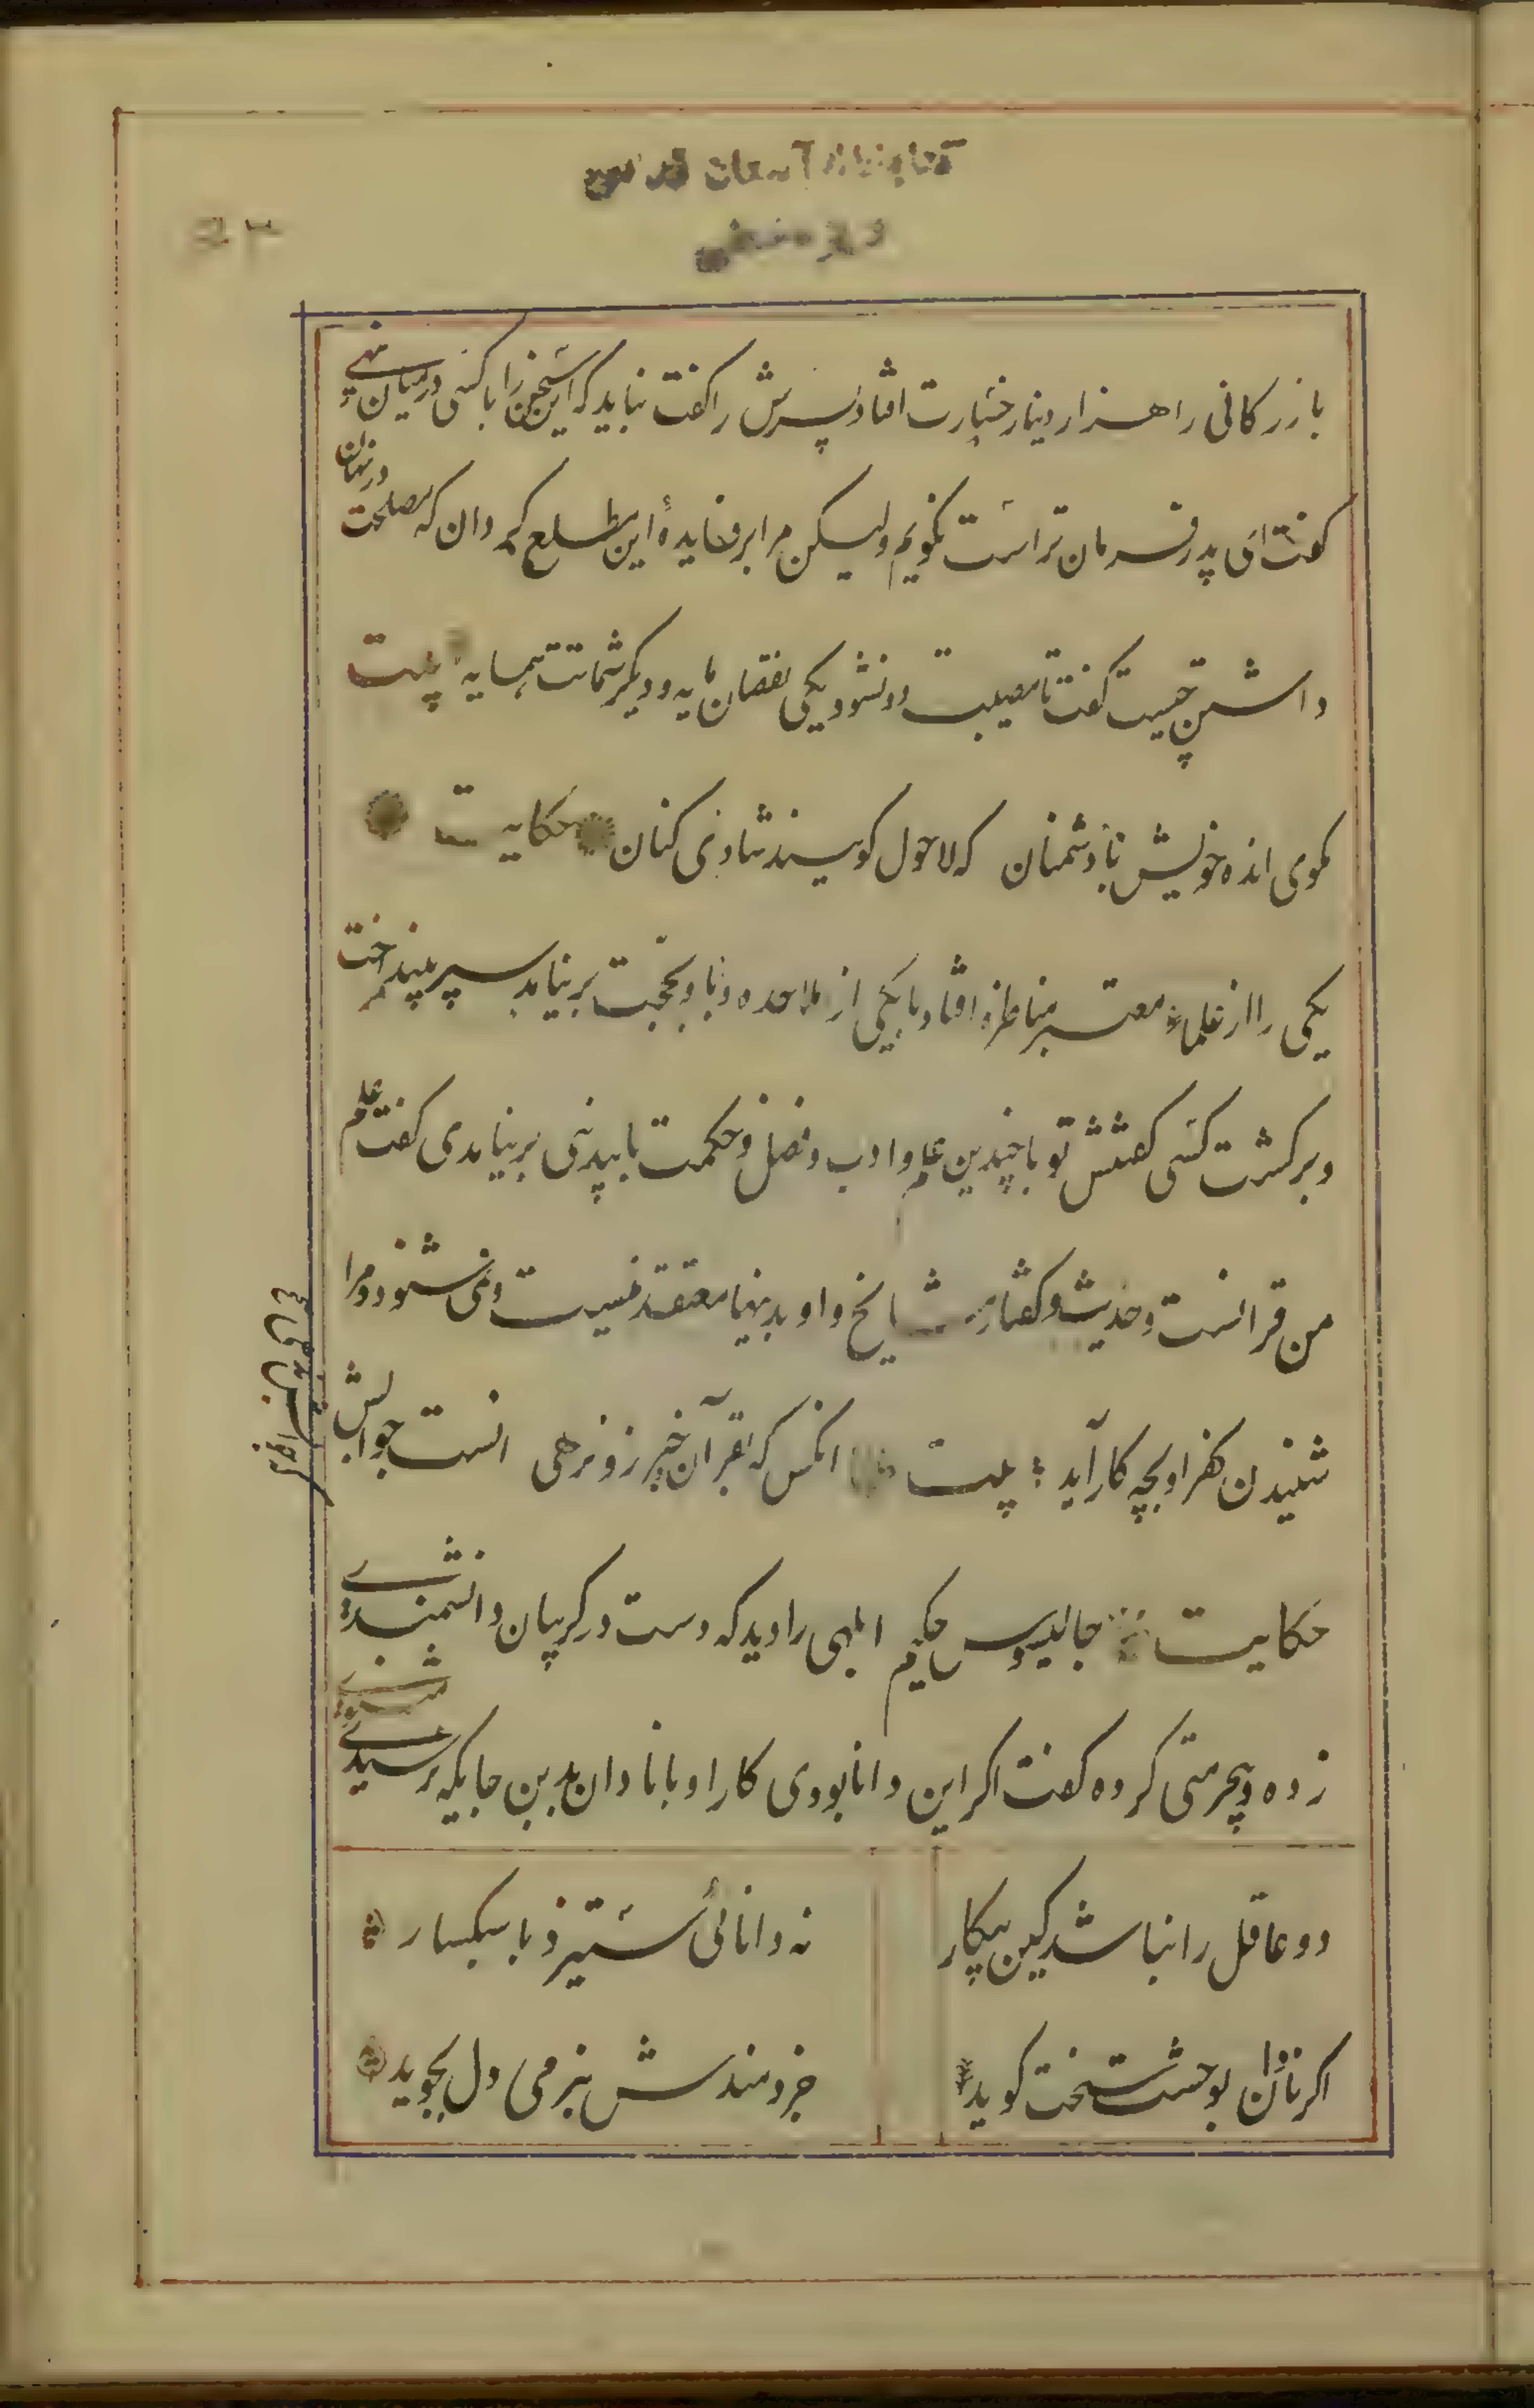 بازرکانی را هزار دینار خسارت افتاد پسرش را کفت نباید که این سخن را با کسی در میان نهی
کفت ای پدر فرمان تراست نکویم ولیکن مرا بر فایدهٔ این مطلع کردان که مصلحت در نهان
داشتن چیست کفت تا مصیبت دو نشود یکی نقصان مایه و دیکر شماتت همسایه بیت
مکوی انده خویش با دشمنان که لاحول کویند شادی کنان حکایت
یکی را از علماء معتبر مناظره افتاد با یکی از ملاحده و با او بحجت بر نیامد سپر بینداخت
و برکشت کسی کفتش تو با چندین علم و ادب و فضل و حکمت با بیدنی بر نیامدی کفت علم
من قرانست و حدیث و کفتار مشایخ و او بدینها معتقد نیست و نمی شنود و مرا
شنیدن کفر او بچه کار آید بیت انکس که بقرآن و خبر زو نرهی انست جوابش
که جوابش ندهی
حکایت جالینوس حکیم ابلهی را دید که دست در کریبان دانشمندی
زده و بیحرمتی کرده کفت اکر این دانا بودی کار او با نادان بدین جایکه نرسیدی
دو عاقل را نباشد کین و پیکار نه دانائی ستیزد با سبکسار
اکر نادان بوحشت سخت کوید خردمندش بنرمی دل بجوید